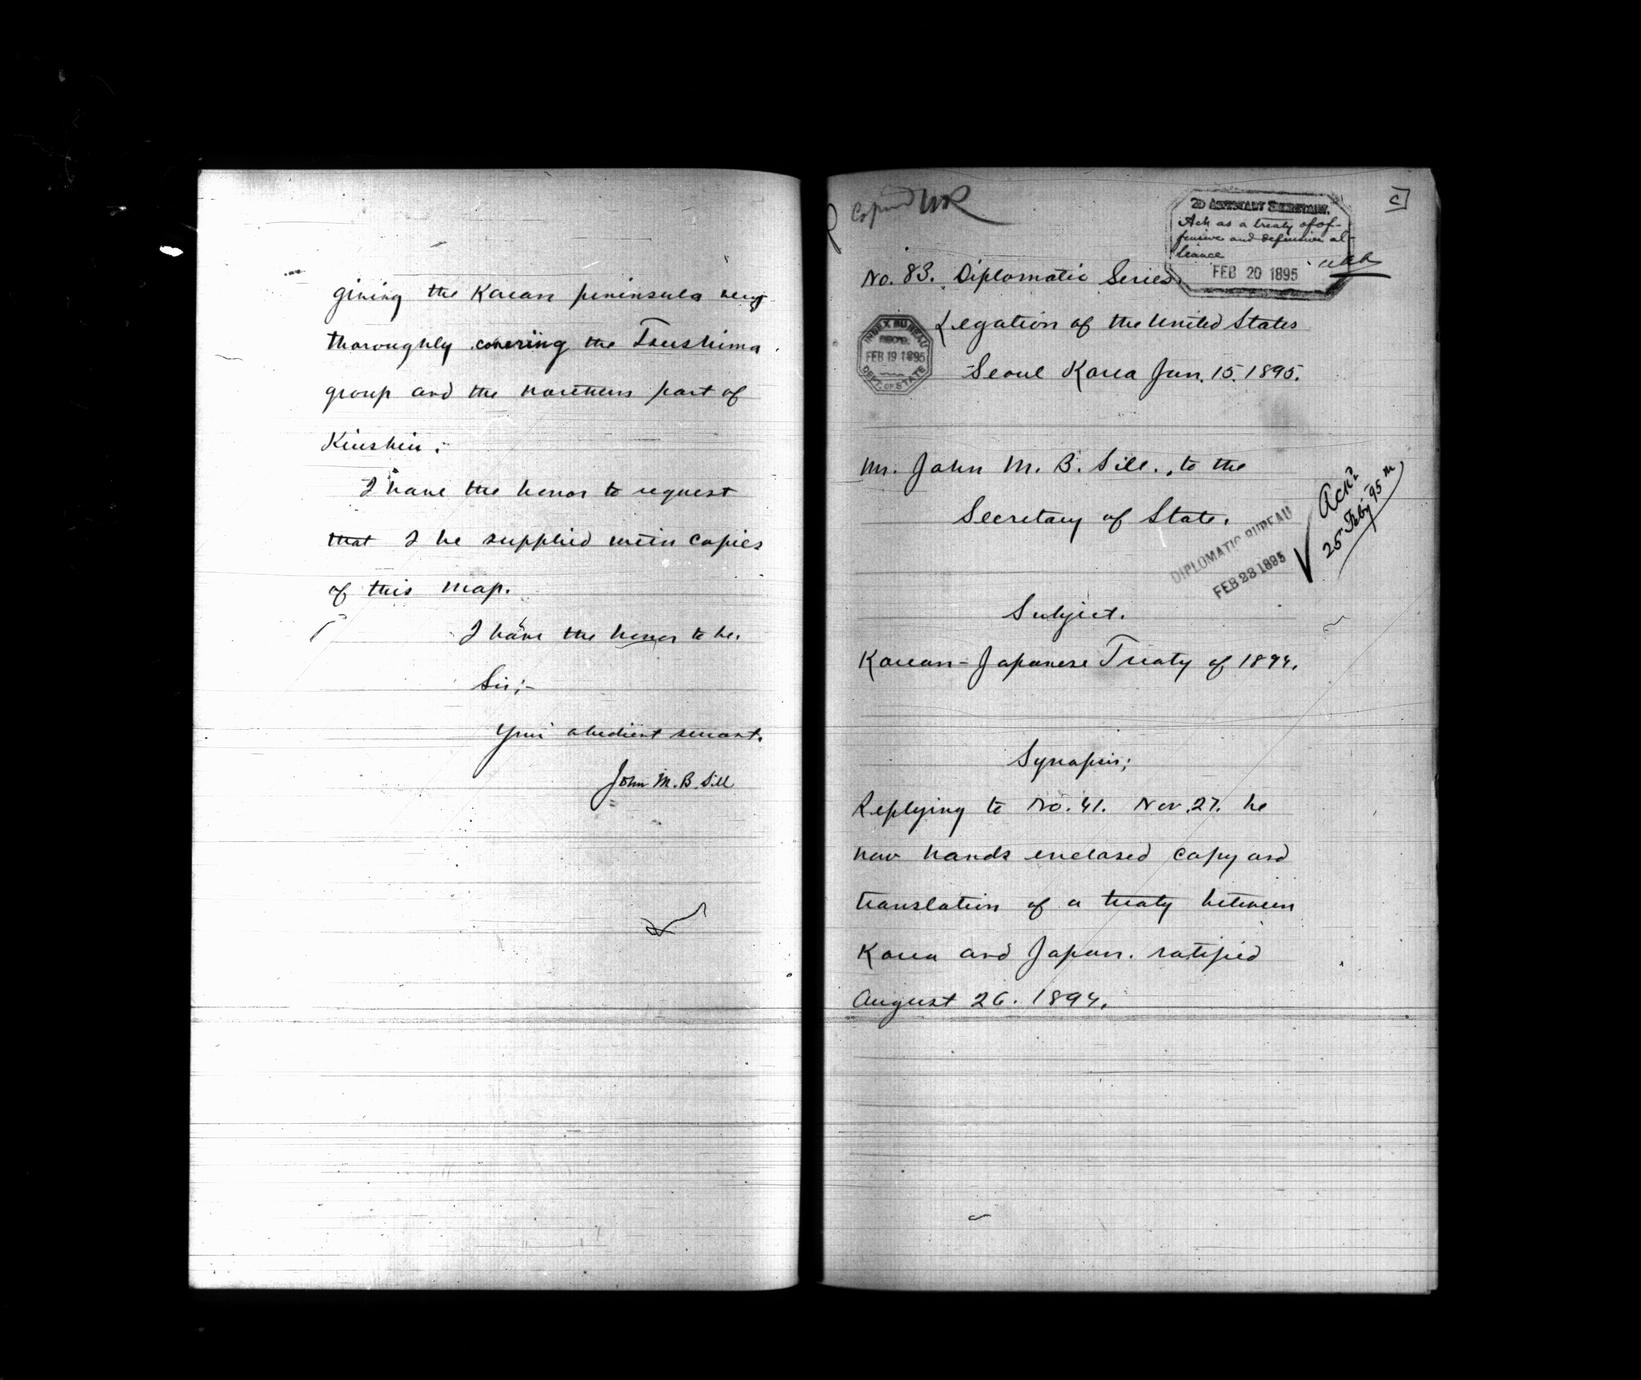 giving the Korean peninsula very
thoroughly covering the Tsushima
group and the northern part of
Kiushiu.
I have the honor to request
that I be supplied with copies
of this map.
I have the honor to be,
Sir;-
Your obedient servant.
John M. B. Sill
Copied
2D ASSISTANT SECRETARY.
Ack as a treaty of of-
fensive and defensive al-
liance
FEB 20 1895
C
No. 83. Diplomatic Series.
INDEX BUREAU
FEB 19 1895
DEPT. OF STATE
Legation of the United States
Seoul Korea Jan. 15. 1895.
Mr. John M. B. Sill., to the
Secretary of State.
DIPLOMATIC BUREAU
FEB 23 1895
Ack'd
25 Feby '95
Subject.
Korean-Japanese Treaty of 1894.
Synopsis;
Replying to No. 41. Nov. 27. he
now hands enclosed copy and
translation of a treaty between
Korea and Japan. ratified
August 26. 1894.